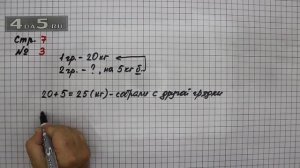 4DA5.RU
Стр. 7
№ 3
1 гр. - 20 кг
2 гр. - ?, на 5 кг б
20 + 5 = 25 (кг) - собрали с другой грядки